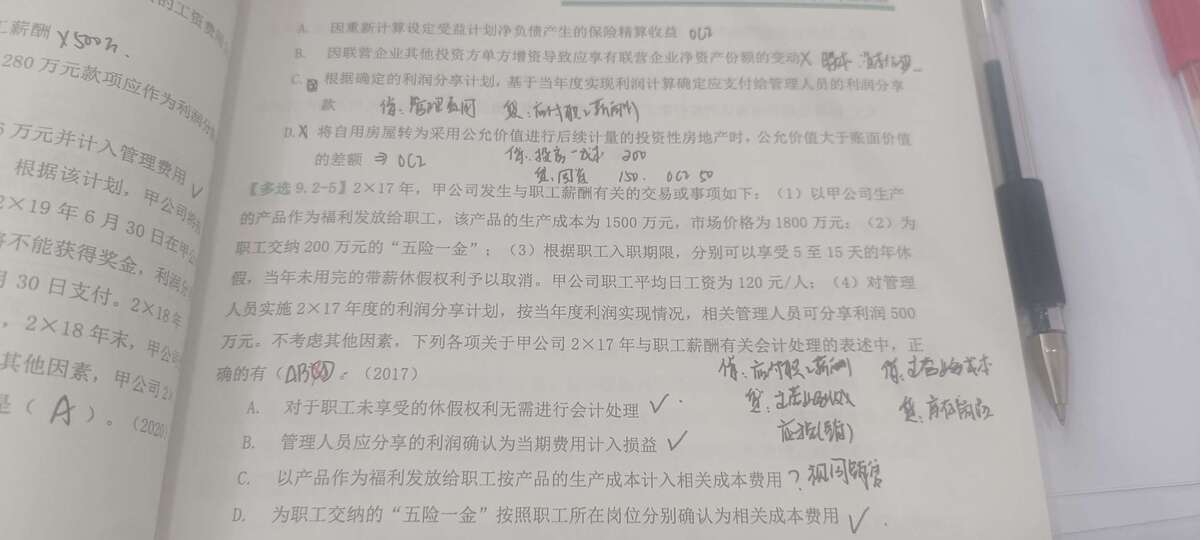 的工资费用
工薪酬 ×500万
280 万元款项应作为利润分
万元并计入管理费用 ✓
根据该计划，甲公司将
2×19 年 6 月 30 日在甲公
将不能获得奖金，利润分
月 30 日支付。2×18年
，2×18 年末，甲公
其他因素，甲公司2×
是（ A ）。（2020）
A. 因重新计算设定受益计划净负债产生的保险精算收益 OCI
B. 因联营企业其他投资方单方增资导致应享有联营企业净资产份额的变动×
C. 根据确定的利润分享计划，基于当年度实现利润计算确定应支付给管理人员的利润分享
款 借：管理费用 贷：应付职工薪酬
D.× 将自用房屋转为采用公允价值进行后续计量的投资性房地产时，公允价值大于账面价值
的差额 ⇒ OCI 借：投房-成本 200
贷：固资 150. OCI 50
【多选 9.2-5】2×17 年，甲公司发生与职工薪酬有关的交易或事项如下：（1）以甲公司生产
的产品作为福利发放给职工，该产品的生产成本为 1500 万元，市场价格为 1800 万元；（2）为
职工交纳 200 万元的“五险一金”；（3）根据职工入职期限，分别可以享受 5 至 15 天的年休
假，当年未用完的带薪休假权利予以取消。甲公司职工平均日工资为 120 元/人；（4）对管理
人员实施 2×17 年度的利润分享计划，按当年度利润实现情况，相关管理人员可分享利润 500
万元。不考虑其他因素，下列各项关于甲公司 2×17 年与职工薪酬有关会计处理的表述中，正
确的有（ABD）。（2017）
借：应付职工薪酬 借：主营业务成本
贷：主营业务收入 贷：库存商品
应交税费(销)
A. 对于职工未享受的休假权利无需进行会计处理 ✓
B. 管理人员应分享的利润确认为当期费用计入损益 ✓
C. 以产品作为福利发放给职工按产品的生产成本计入相关成本费用 ? 视同销售
D. 为职工交纳的“五险一金”按照职工所在岗位分别确认为相关成本费用 ✓